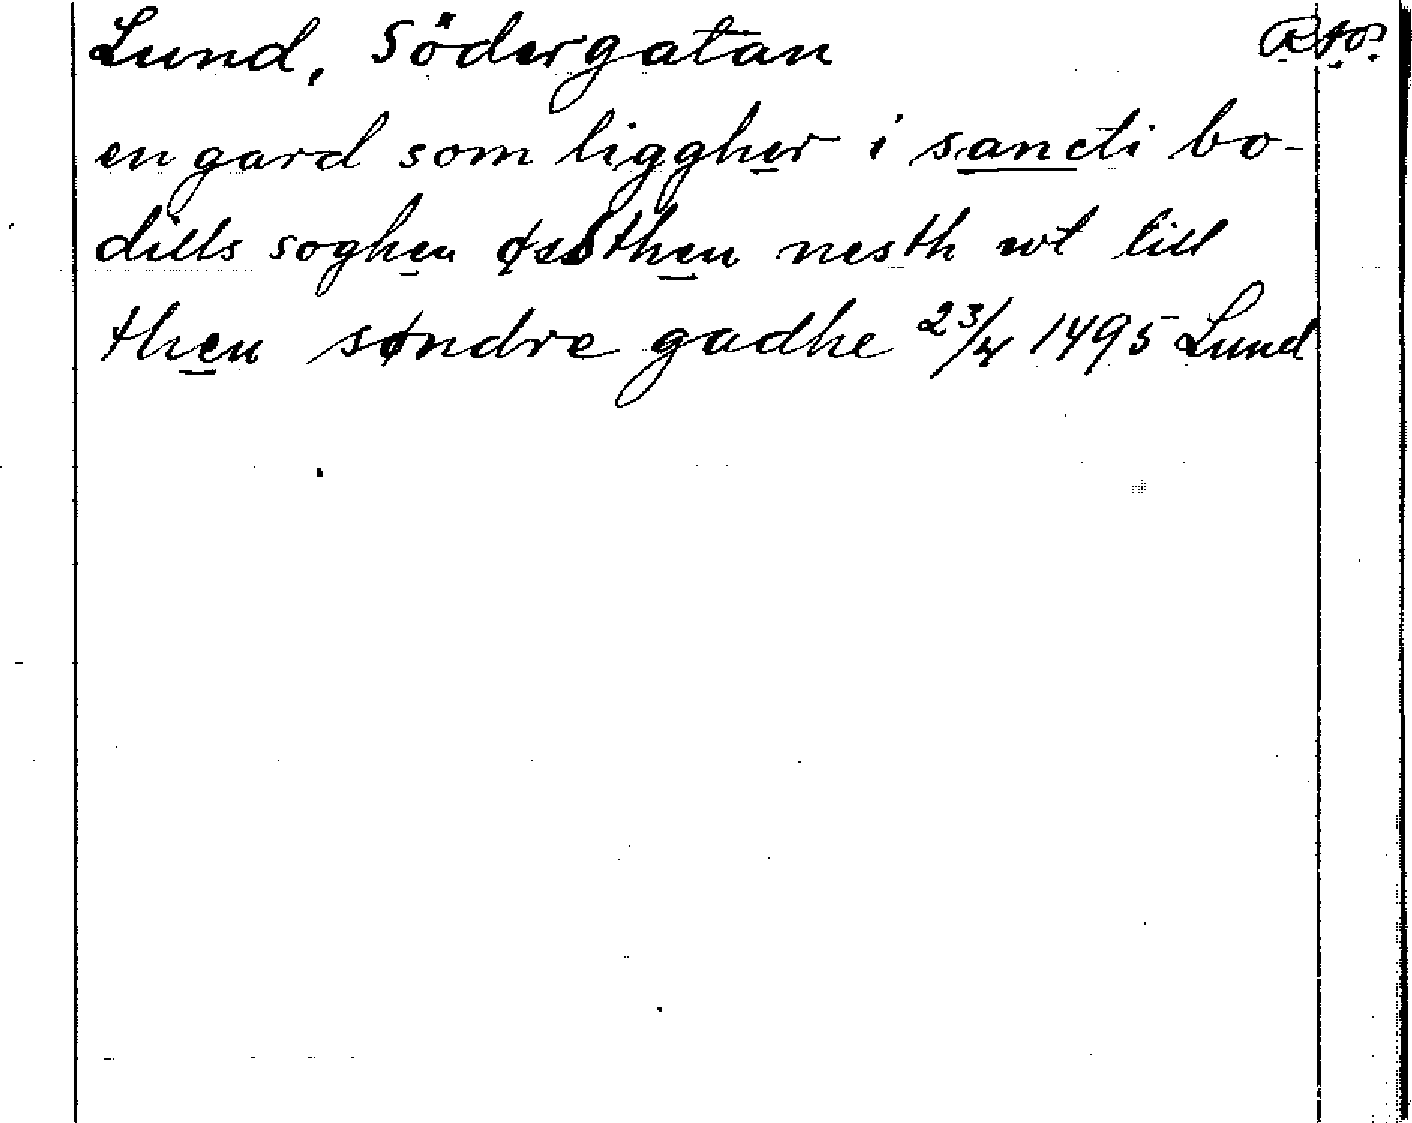 Lund, Södergatan RAp.
en gard som liggher i sancti bo-
dills soghen østhen nesth wt till
then søndre gadhe 23/4 1495 Lund